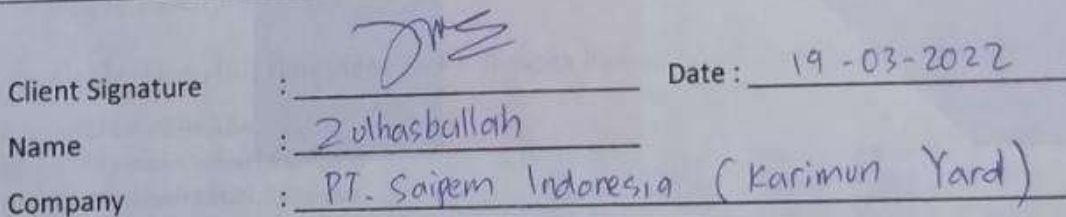 Client Signature : Date : 19-03-2022
Name : Zulhasbullah
Company : PT. Saipem Indonesia (Karimun Yard)